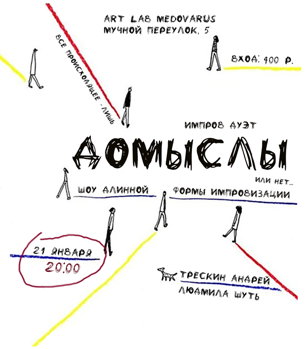 ART LAB MEDOVARUS
МУЧНОЙ ПЕРЕУЛОК, 5
ВХОД: 400 Р.
ВСЕ ПРОИСХОДЯЩЕЕ - ЛИШЬ
ИМПРОВ ДУЭТ
ДОМЫСЛЫ
ИЛИ НЕТ...
ШОУ ДЛИННОЙ ФОРМЫ ИМПРОВИЗАЦИИ
21 ЯНВАРЯ
20:00
ТРЕСКИН АНДРЕЙ
ЛЮДМИЛА ШУТЬ